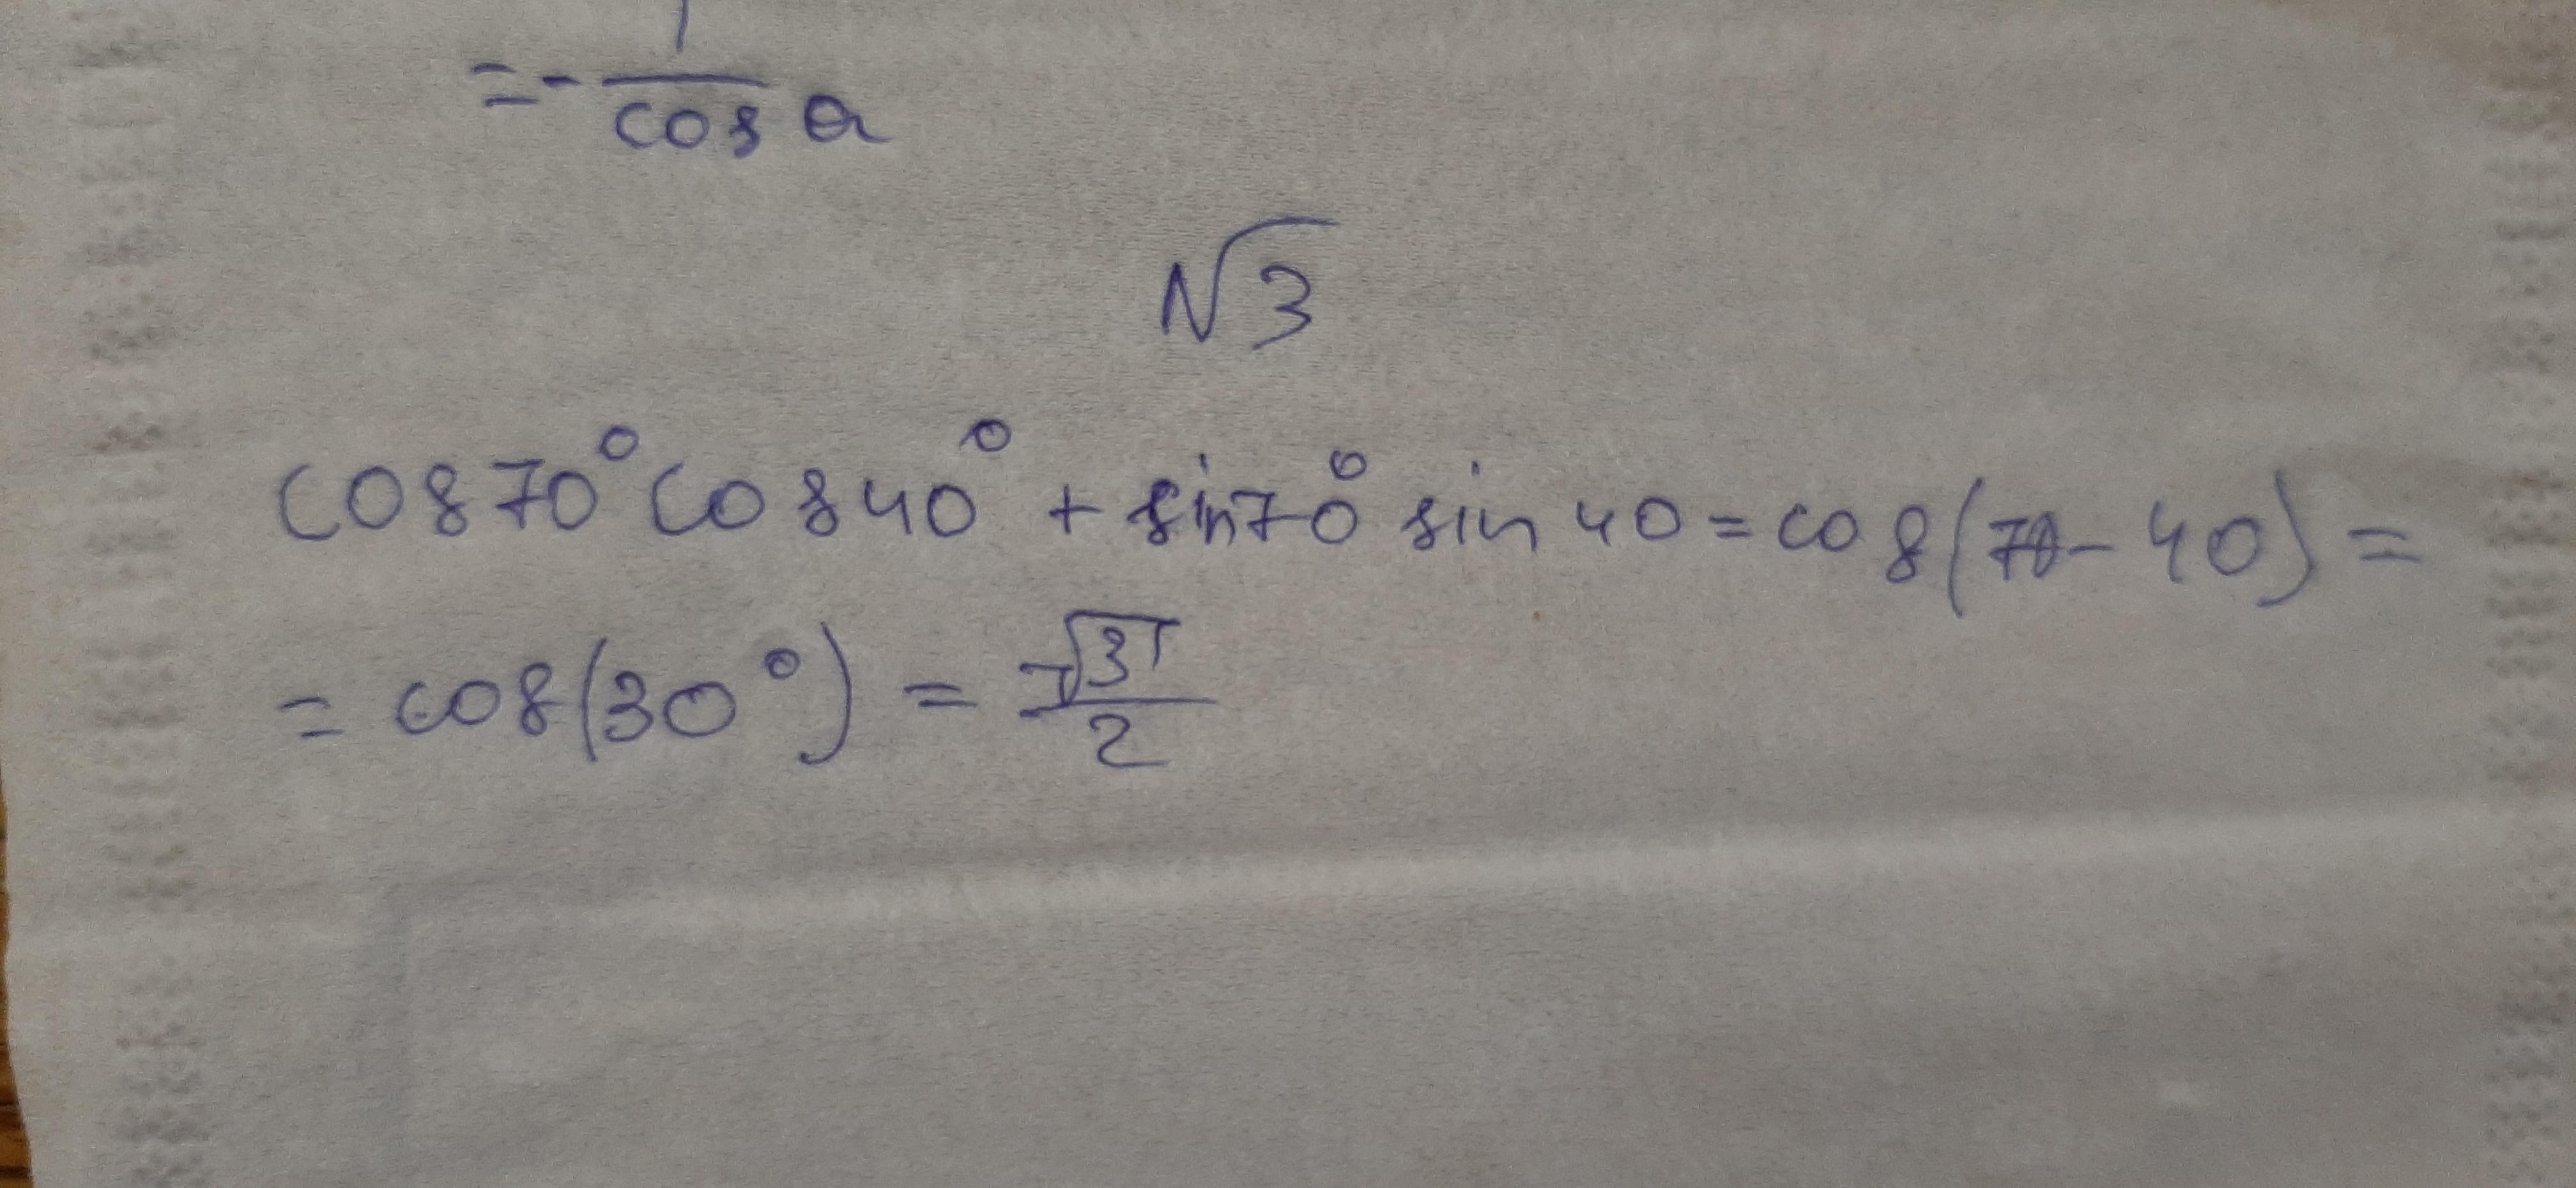 = - 1/cos a
√3
cos 70° cos 40° + sin 70° sin 40 = cos(70 - 40) =
= cos(30°) = √3/2